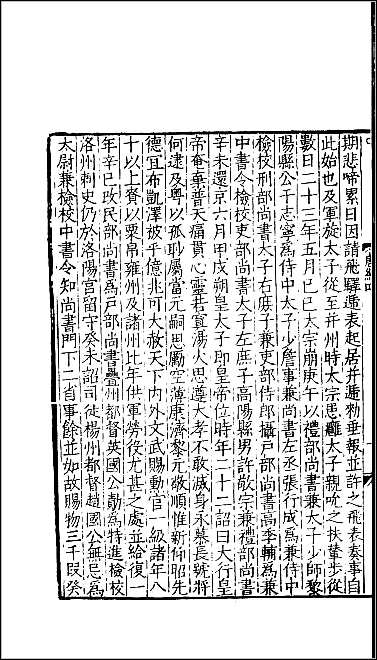 期悲啼累日因請飛驛遞表起居并遞勑垂報並許之飛表奏事自
此始也及軍旋太子從至并州時太宗患癰太子親吮之扶輦步從
數日二十三年五月己巳太宗崩庚午以禮部尚書兼太子少師黎
陽縣公于志寧爲侍中太子少詹事兼尚書左丞張行成爲兼侍中
檢校刑部尚書太子右庶子兼吏部侍郎攝戶部尚書高季輔爲兼
中書令檢校吏部尚書太子左庶子高陽縣男許敬宗兼禮部尚書
辛未還京六月甲戌朔皇太子即皇帝位時年二十二詔曰大行皇
帝奄棄普天痛貫心靈若寘湯火思遵大孝不敢滅身永慕長號將
何逮及粤以孤眇屬當元嗣思勵空薄康濟黎元敬順惟新仰昭先
德宜布凱澤被乎億兆可大赦天下内外文武賜勳官一級諸年八
十以上賚以粟帛雍州及諸州比年供軍勞役尤甚之處並給復一
年辛巳改民部尚書爲戶部尚書疊州都督英國公勣爲特進檢校
洛州刺史仍於洛陽宮留守癸未詔司徒楊州都督趙國公無忌爲
太尉兼檢校中書令知尚書門下二省事餘並如故賜物三千段癸